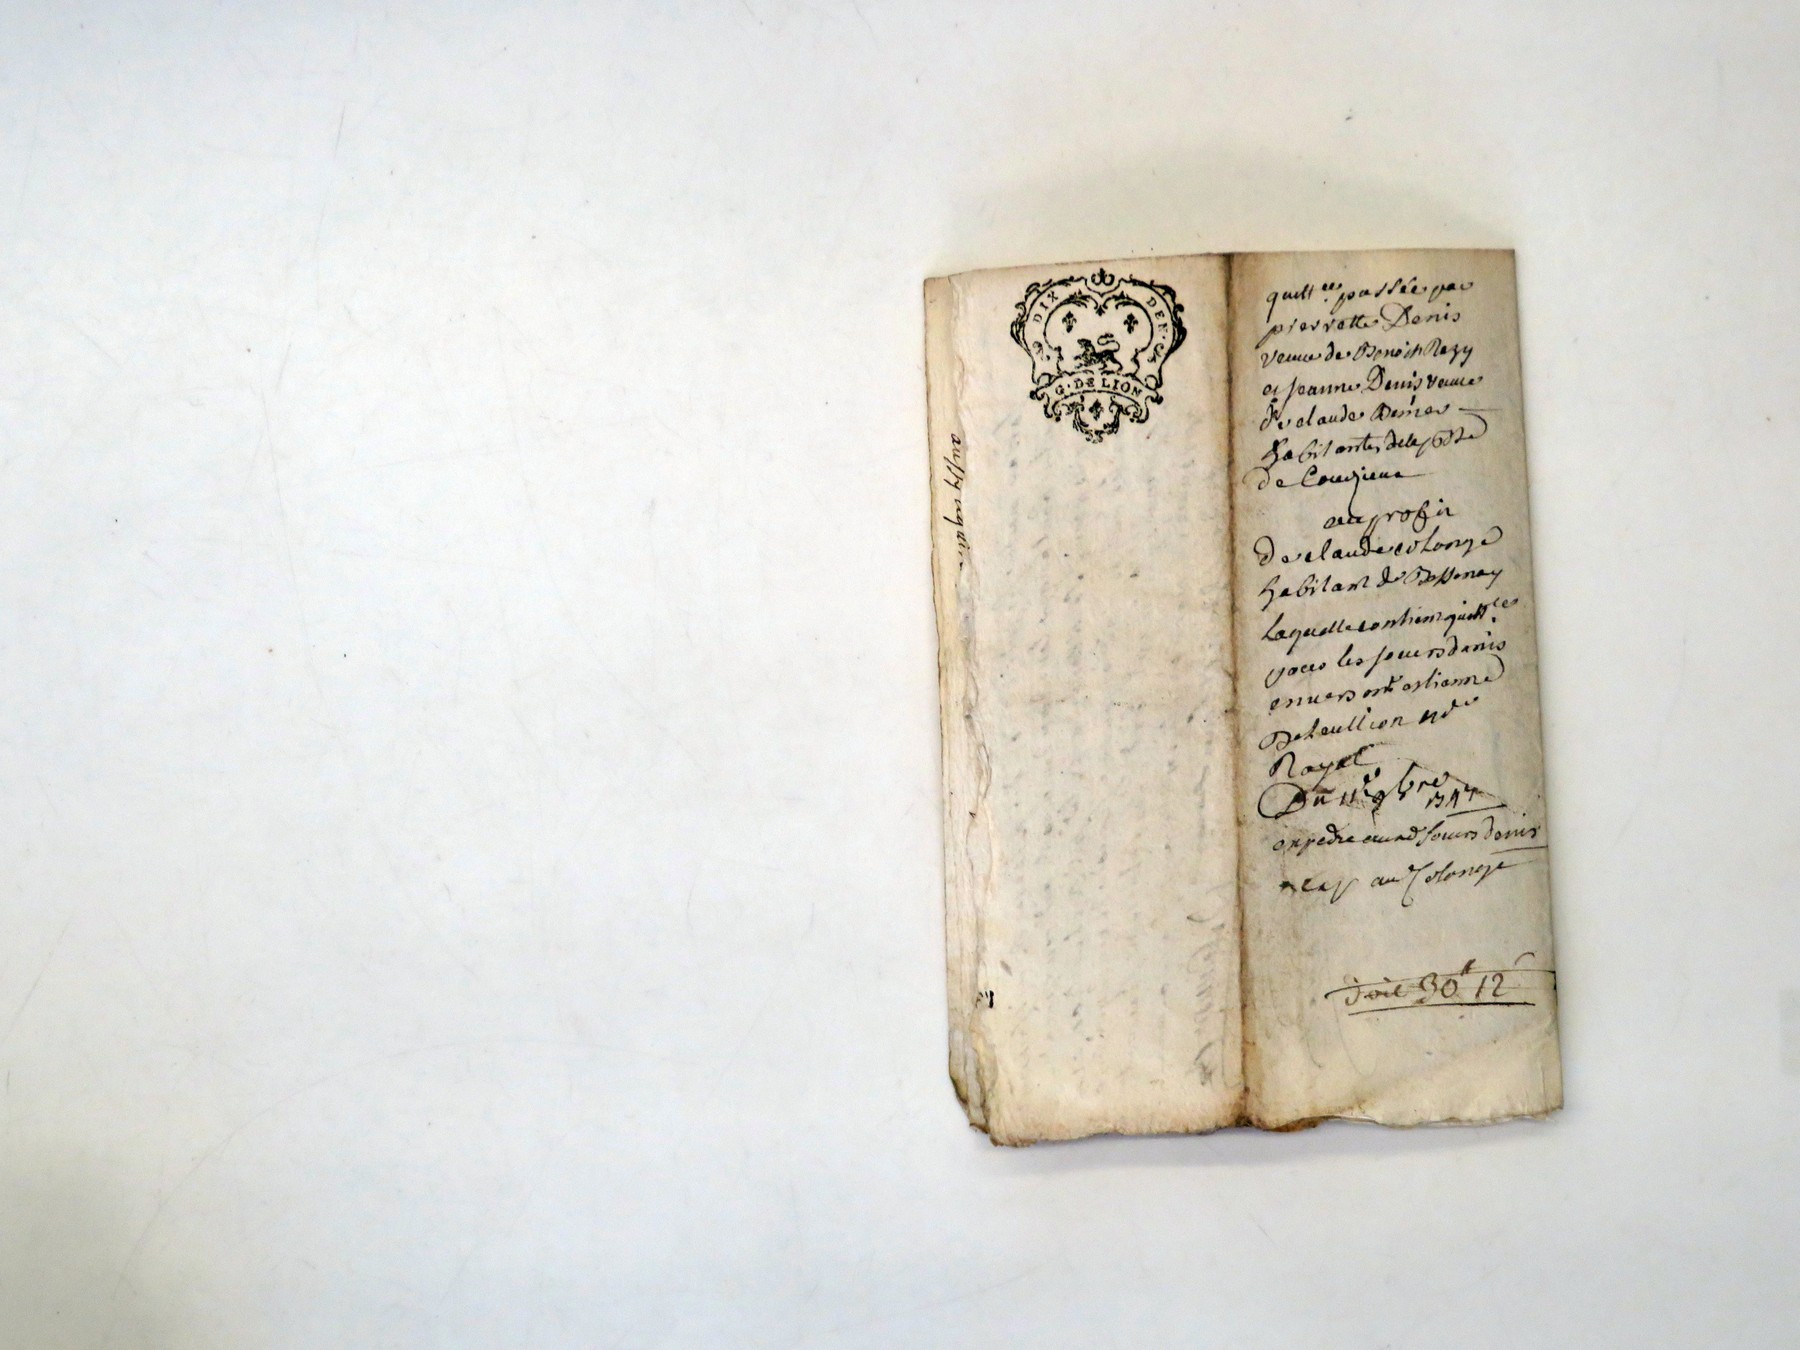 DIX DEN.
G. DE LION
aussy
quitt.ce passée par
pierrette Denis
veuue de Benoist Rezy
et Jeanne Denis veuue
de claude
habitantes de la
de Couzieux
au profit
De claude Colonge
habitant de Bessenay
Laquelle contient quitt.ce
par les soeurs denis
enuers estienne
not.e
Royal
Du 11.e 9bre 1747
expedié aux d soeurs denis
au Colonge
doit 30 12